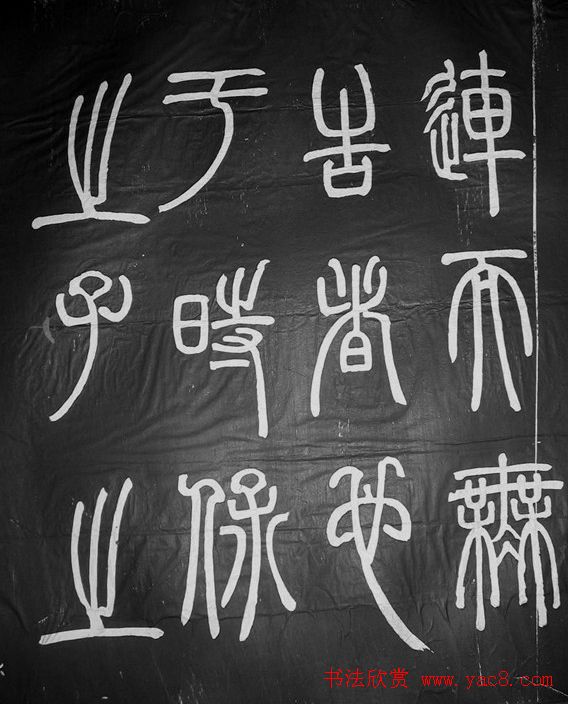 連而無
告者也
于時保
之子之
书法欣赏 www.yac8.com